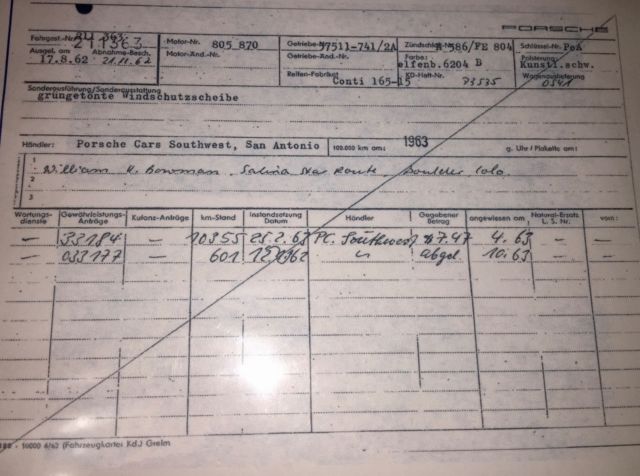 PORSCHE
Fahrgest.-Nr. 211363 Motor-Nr. 805 870 Getriebe-Nr. 37511-741/2A Zündschloß-Nr. K 586/FE 804 Schlüssel-Nr. PoA
Ausgel. am Abnahme-Besch. Motor-Änd.-Nr. Getriebe-Änd.-Nr. Farbe: elfenb.6204 B Polsterung: Kunstl.schw.
17.8.62 21.11.62 Reifen-Fabrikat Conti 165-15 KD-Heft-Nr. Wagenauslieferung 0541
Sonderausführung/Sonderausstattung
grüngetönte Windschutzscheibe
Händler: Porsche Cars Southwest, San Antonio 100.000 km am: 1963 g. Uhr / Plakette am:
1 William H. Bowman, Salina Star Route, Boulder Colo.
2
3
Wartungs-dienste Gewährleistungs-Anträge Kulanz-Anträge km-Stand Instandsetzung Datum Händler Gegebener Betrag angewiesen am Natural-Ersatz L. S. Nr. vom:
— 33184 — 10355 25.2.63 PC. Southwest 4.63 — —
— 033177 — 601 1962 " abgel. 10.63 — —
10000 4/62 (Fahrzeugkartei KdJ Greim